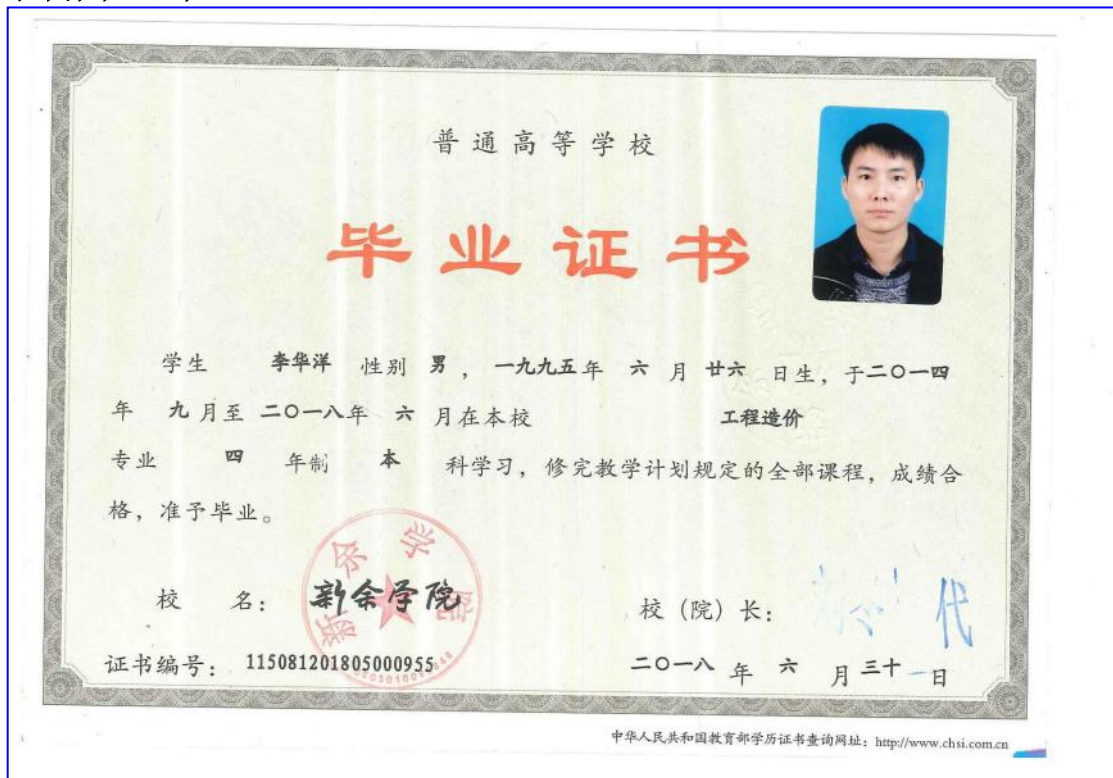 普通高等学校
毕业证书
学生 李华洋 性别 男，一九九五年 六 月 廿六 日生，于二〇一四
年 九月至 二〇一八年 六 月在本校 工程造价
专业 四 年制 本 科学习，修完教学计划规定的全部课程，成绩合
格，准予毕业。
新余学院
校 名： 新余学院 校（院）长： 代
证书编号： 115081201805000955 二〇一八 年 六 月 三十 日
中华人民共和国教育部学历证书查询网址：http://www.chsi.com.cn